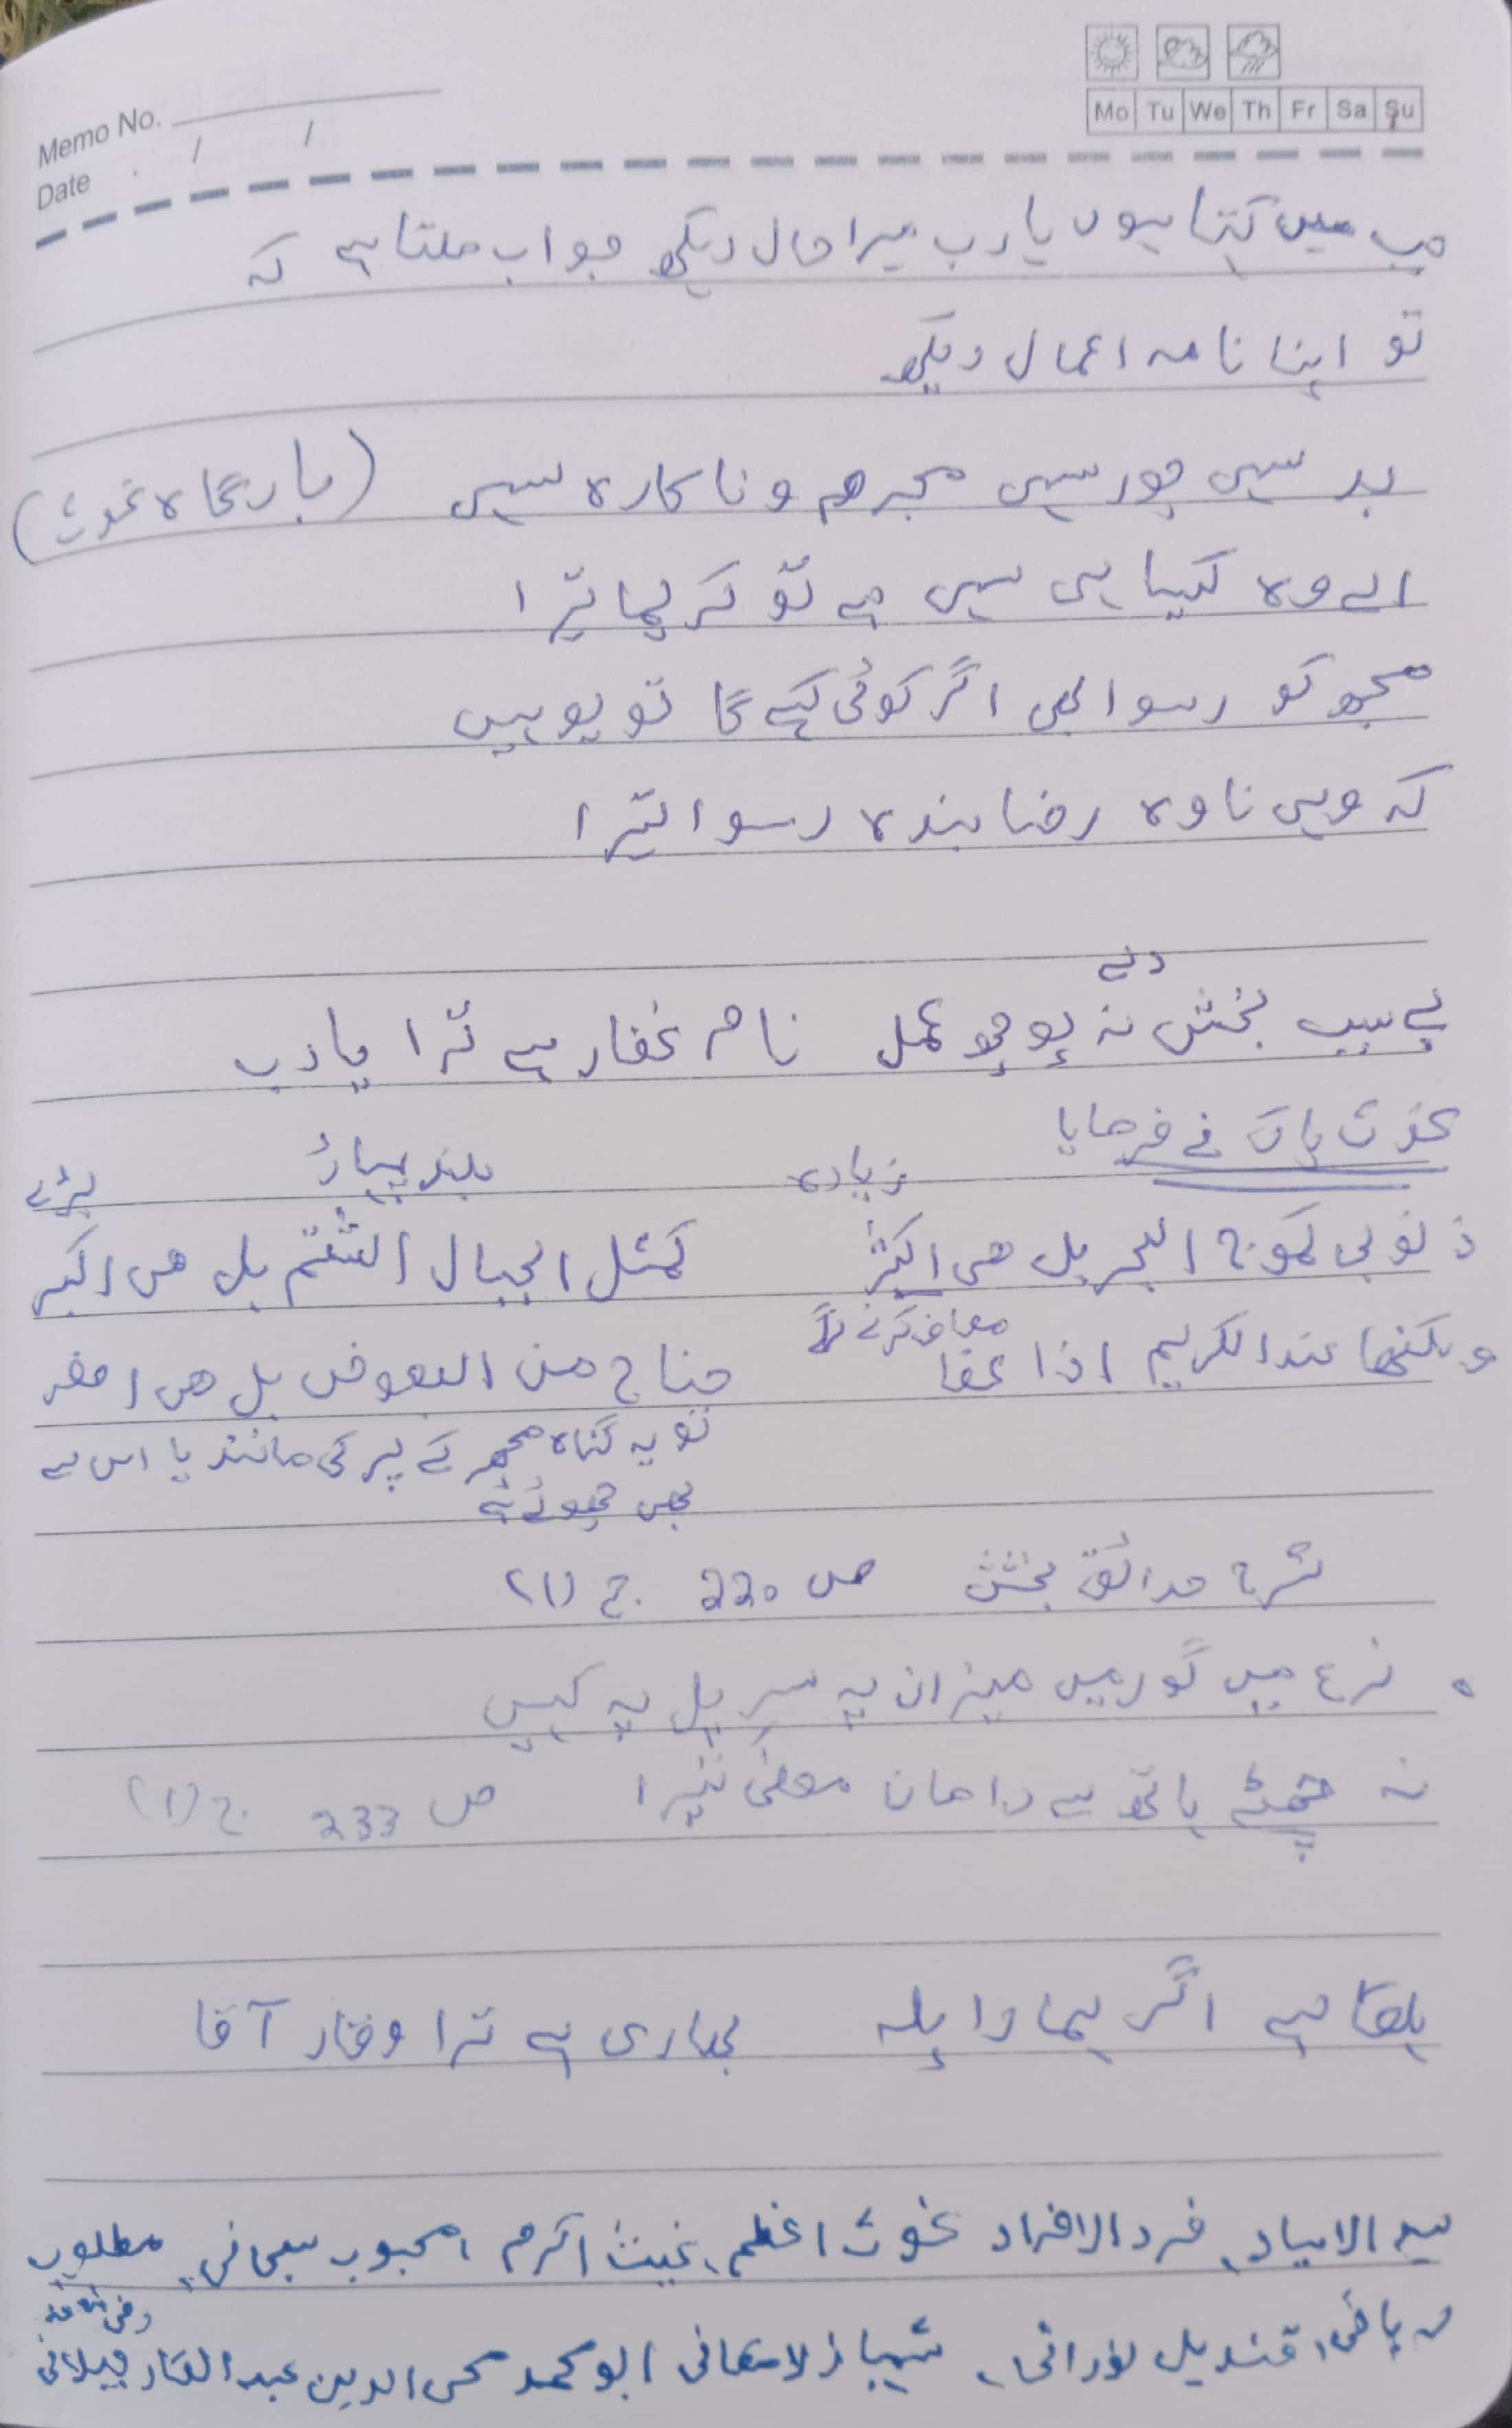 Memo No.
Date / /
Mo Tu We Th Fr Sa Su
جب میں کہتا ہوں یا رب میرا حال دیکھ جواب ملتا ہے کہ
تو اپنا نامہ اعمال دیکھ
بد سہی چور سہی مجرم و ناکارہ سہی (بارگاہ غوث)
اے وہ کیسا ہی سہی ہے تو کریما تیرا
مجھ کو رسوا بھی اگر کوئی کہے گا تو یوہیں
کہ وہی نا وہ رضا بندہ رسوا تیرا
دے
بے سبب بخش نہ پوچھ عمل نام غفار ہے ترا یا رب
غوث پاک نے فرمایا
زیادہ بلند پہاڑ بڑے
ذنوبی کموج البحر بل ھی اکثر کمثل الجبال الشم بل ھی اکبر
معاف کرنے لگے
ولکنھا عند الکریم اذا عفا جناح من البعوض بل ھی اصغر
تو یہ گناہ مچھر کے پر کی مانند یا اس سے
بھی چھوٹے ہے
شرح حدائق بخشش ص 220 ج (1)
نزع میں گور میں میزان پہ سر پل پہ کہیں
نہ چھٹے ہاتھ سے دامان معلی تیرا ص 233 ج (1)
ہلکا ہے اگر ہمارا پلہ بھاری ہے ترا وقار آقا
سید الاسیاد، فرد الافراد غوث اعظم، غیث اکرم، محبوب سبحانی، مطلوب
رضی اللہ عنہ
ربانی، قندیل نورانی، شہباز لامکانی ابو محمد محی الدین عبد القادر جیلانی